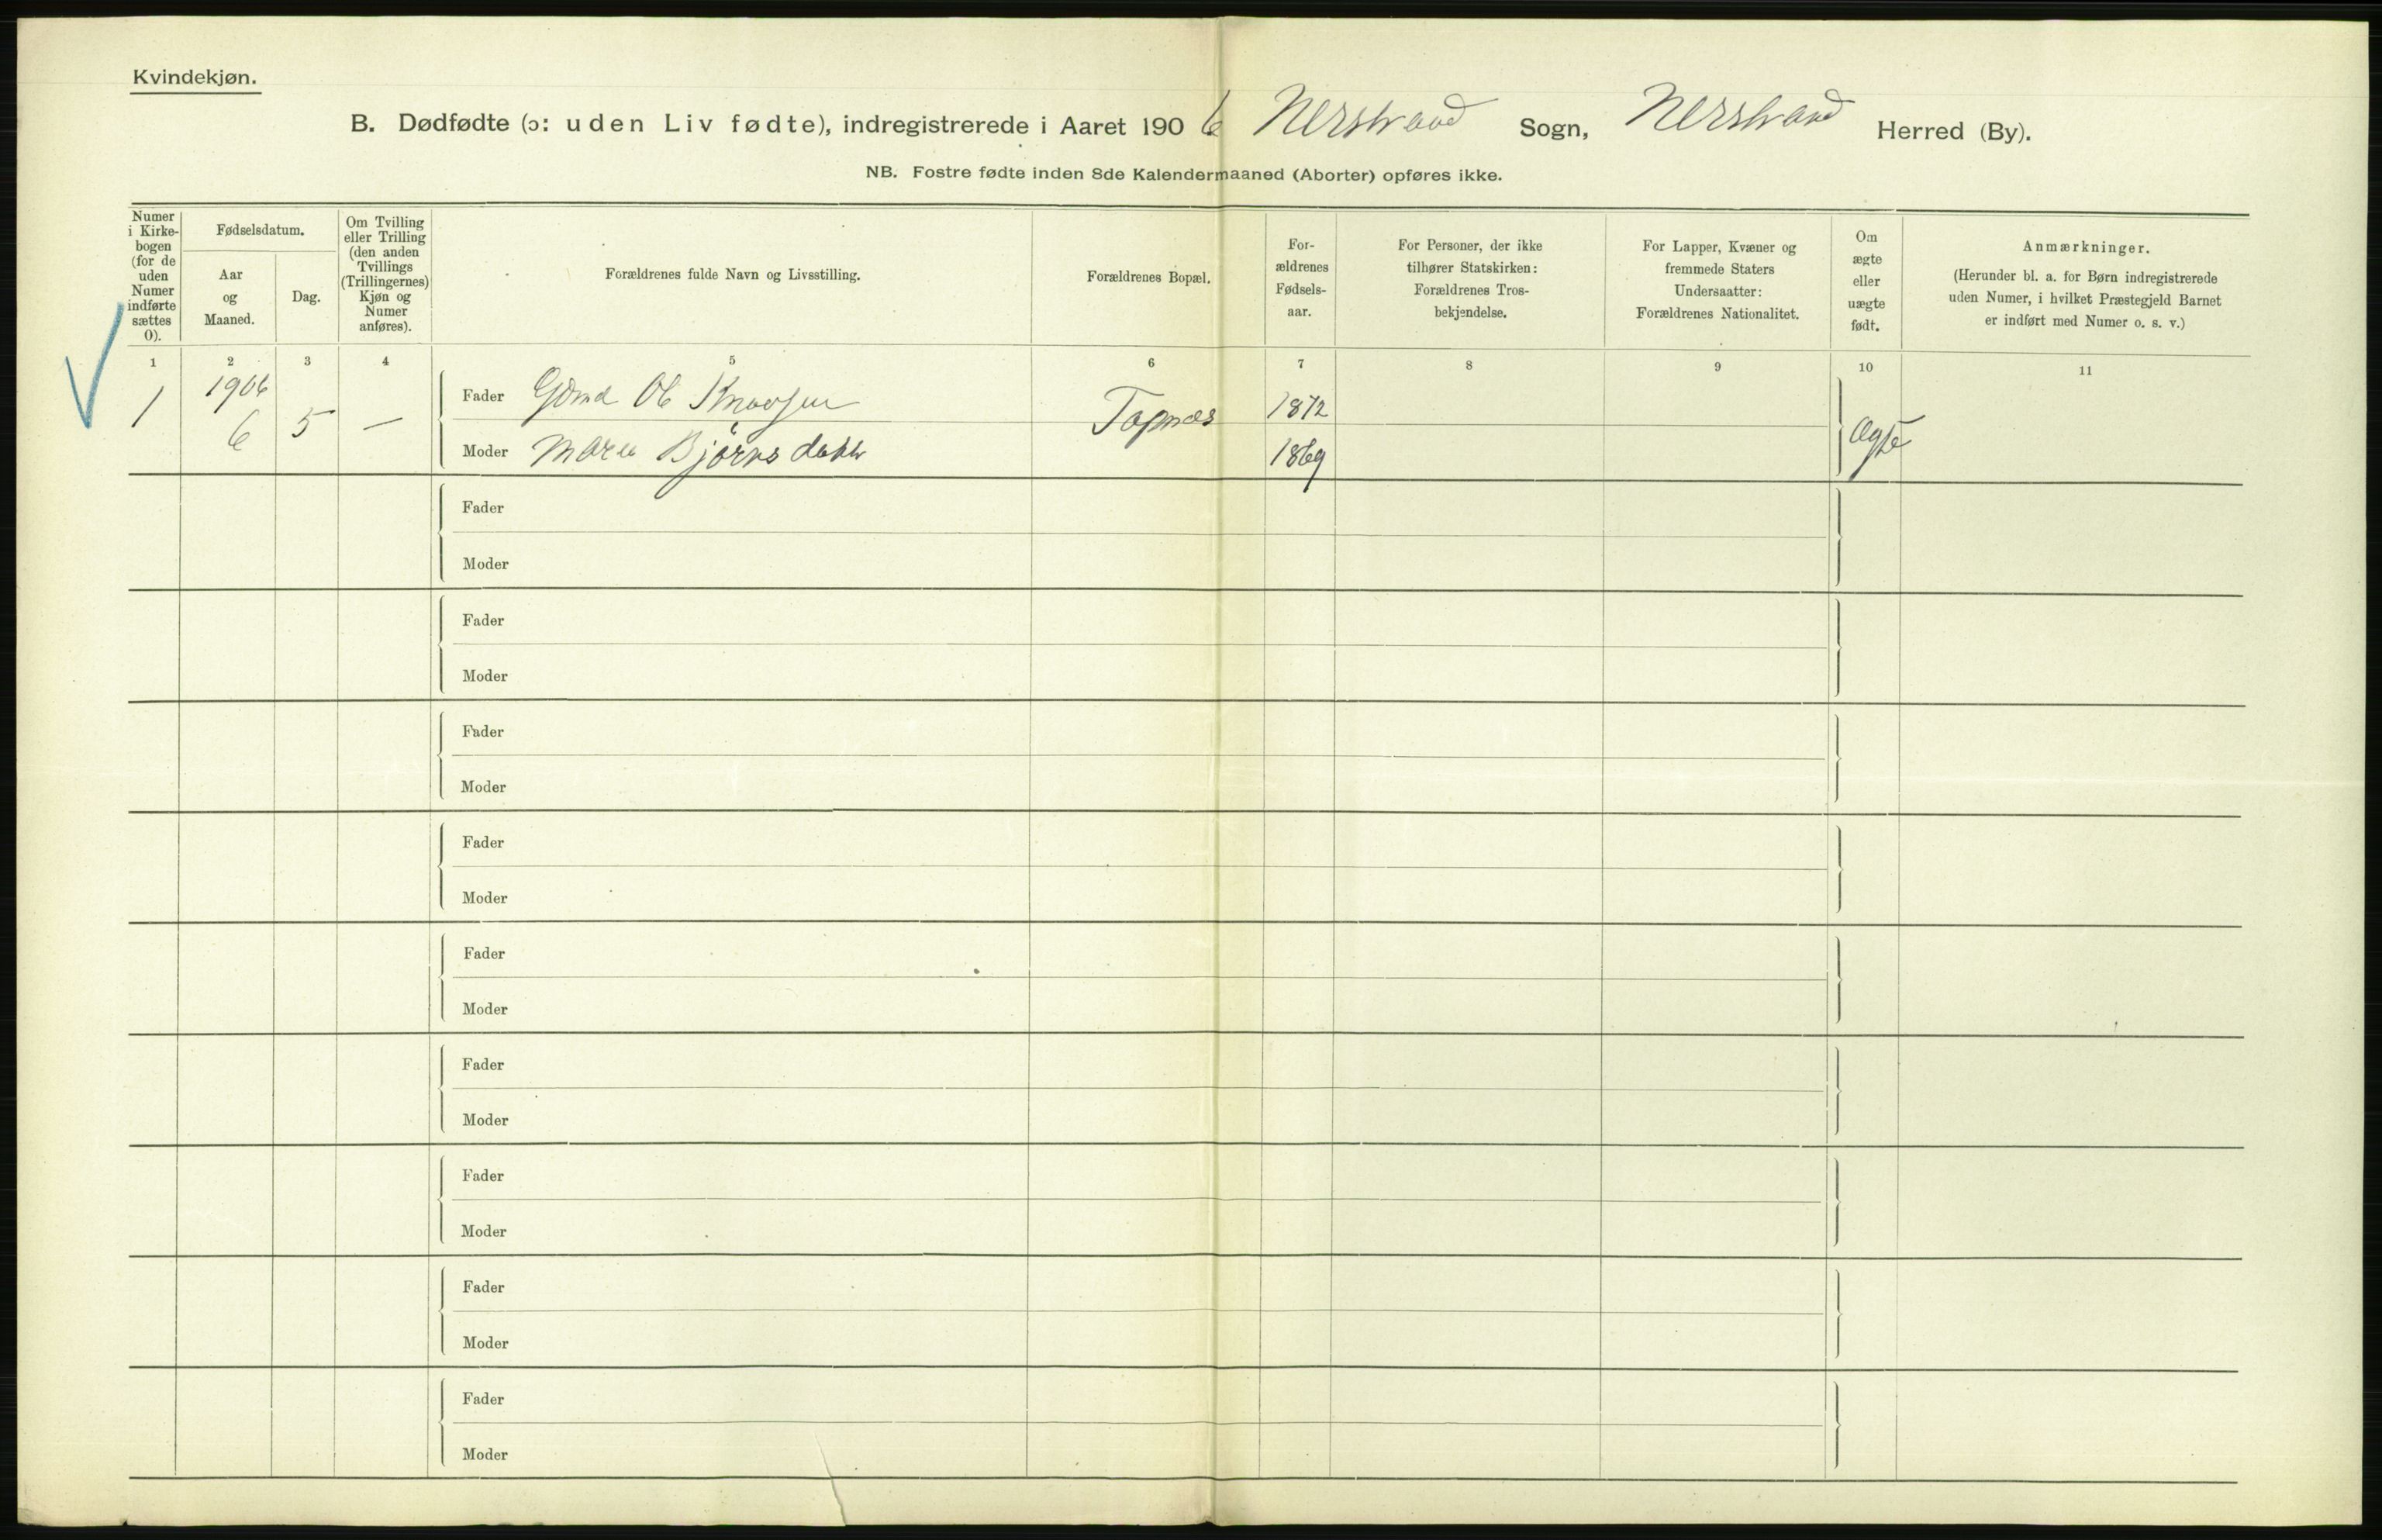 Kvindekjøn.
B. Dødfødte (ɔ: uden Liv fødte), indregistrerede i Aaret 1906 Nerstrand Sogn, Nerstrand Herred (By).
NB. Fostre fødte inden 8de Kalendermaaned (Aborter) opføres ikke.
Numer
i Kirke-
bogen
(for de
uden
Numer
indførte
sættes
0).
Fødselsdatum.
Aar
og
Maaned.
Dag.
Om Tvilling
eller Trilling
(den anden
Tvillings
(Trillingernes)
Kjøn og
Numer
anføres).
Forældrenes fulde Navn og Livsstilling.
Forældrenes Bopæl.
For-
ældrenes
Fødsels-
aar.
For Personer, der ikke
tilhører Statskirken:
Forældrenes Tros-
bekjendelse.
For Lapper, Kvæner og
fremmede Staters
Undersaatter:
Forældrenes Nationalitet.
Om
ægte
eller
uægte
født.
Anmærkninger.
(Herunder bl. a. for Børn indregistrerede
uden Numer, i hvilket Præstegjeld Barnet
er indført med Numer o. s. v.)
1 2 3 4 5 6 7 8 9 10 11
1 1906
6 5 —
Fader Gdmd Ol
1872
Moder Bjørnsdatter
1869
Ægte
Fader
Moder
Fader
Moder
Fader
Moder
Fader
Moder
Fader
Moder
Fader
Moder
Fader
Moder
Fader
Moder
Fader
Moder